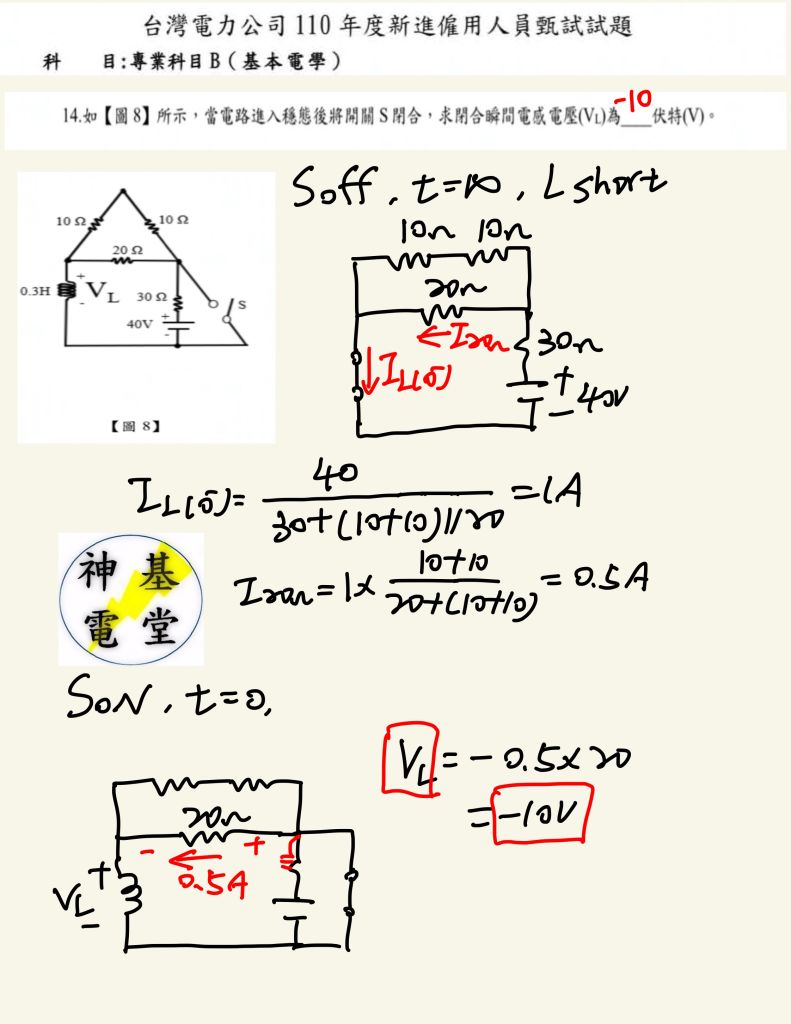 台灣電力公司 110 年度新進僱用人員甄試試題
科 目:專業科目 B(基本電學)
-10
14.如【圖 8】所示,當電路進入穩態後將開關 S 閉合,求閉合瞬間電感電壓(VL)為____伏特(V)。
Soff, t=∞, L short
10Ω 10Ω
20Ω
0.3H + VL - 30Ω S
40V + -
【圖 8】
10Ω 10Ω
20Ω
←I20Ω 30Ω
↓IL(0⁻) + - 40V
IL(0⁻)= 40 / 30+(10+10)//20 =1A
神 基
電 堂
I20Ω=1× 10+10 / 20+(10+10) = 0.5A
SON, t=0,
VL = - 0.5×20
= -10V
20Ω
- ← +
0.5A
VL + -